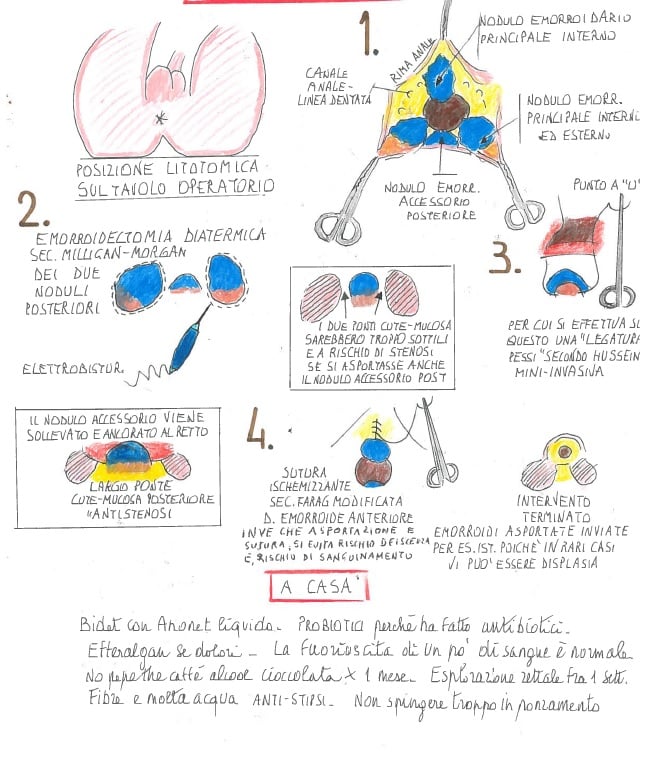 1.
NODULO EMORROIDARIO
PRINCIPALE INTERNO
RIMA ANALE
CANALE
ANALE-
LINEA DENTATA
NODULO EMORR.
PRINCIPALE INTERNO
ED ESTERNO
NODULO EMORR.
ACCESSORIO
POSTERIORE
POSIZIONE LITOTOMICA
SUL TAVOLO OPERATORIO
2.
EMORROIDECTOMIA DIATERMICA
SEC. MILLIGAN-MORGAN
DEI DUE
NODULI
POSTERIORI
ELETTROBISTUR.
I DUE PONTI CUTE-MUCOSA
SAREBBERO TROPPO SOTTILI
E A RISCHIO DI STENOSI
SE SI ASPORTASSE ANCHE
IL NODULO ACCESSORIO POST
3.
PUNTO A "U"
PER CUI SI EFFETTUA SU
QUESTO UNA "LEGATURA
PESSI" SECONDO HUSSEIN
MINI-INVASIVA
IL NODULO ACCESSORIO VIENE
SOLLEVATO E ANCORATO AL RETTO
LARGIO PONTE
CUTE-MUCOSA POSTERIORE
ANTISTENOSI
4.
SUTURA
ISCHEMIZZANTE
SEC. FARAG MODIFICATA
D. EMORROIDE ANTERIORE
INVECE CHE ASPORTAZIONE E
SUTURA, SI EVITA RISCHIO DEISCENZA
E RISCHIO DI SANGUINAMENTO
INTERVENTO
TERMINATO
EMORROIDI ASPORTATE INVIATE
PER ES. IST. POICHÈ IN RARI CASI
VI PUO' ESSERE DISPLASIA
A CASA
Bidet con Anonet liquido. PROBIOTICI perchè ha fatto antibiotici.
Efferalgan se dolori - La fuoriuscita di un po' di sangue è normale
No pepe the caffè alcool cioccolata x 1 mese. Esplorazione rettale fra 1 sett.
Fibre e molta acqua ANTI-STIPSI. Non spingere troppo in ponzamento